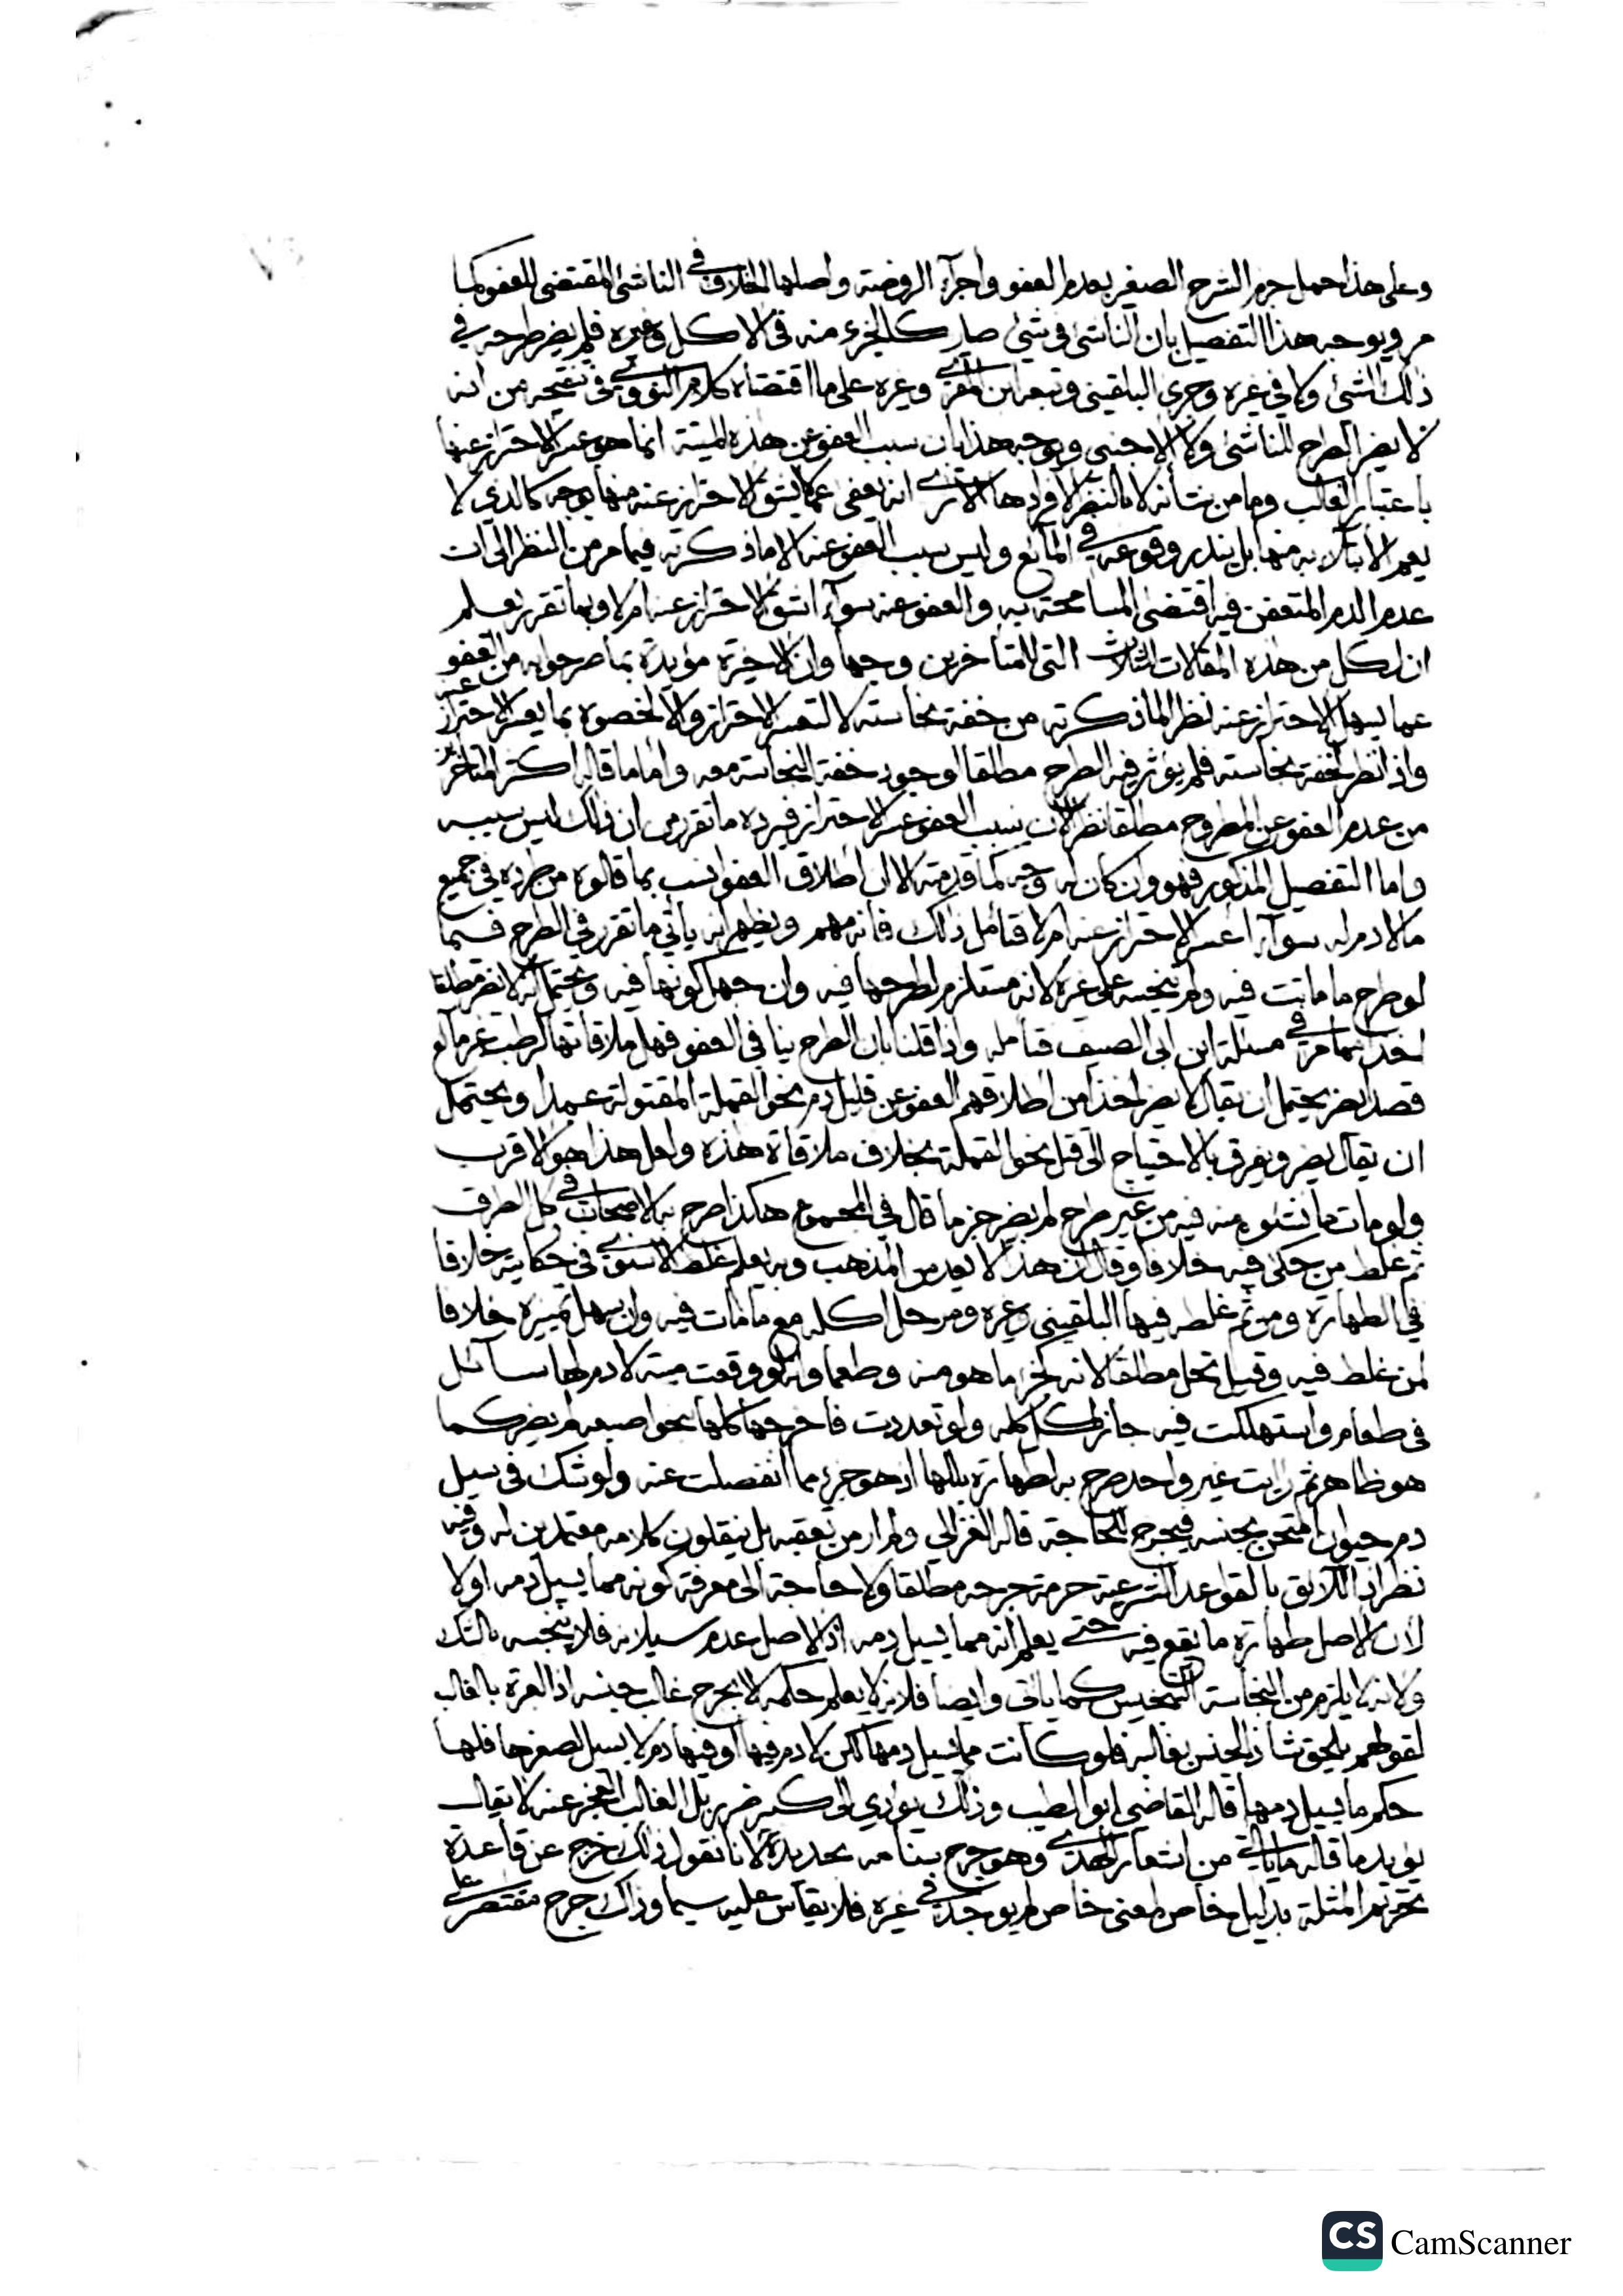 وعلى هذا حمل جزم الشرح الصغير بعدم العفو واجرآء الروضة واصلها الخلاف في الناشئ المقتضى للعفو كما
مر ويوجه هذا التفصيل بان الناشئ في شئ صار كالجزء منه في الاكل وغيره فلم يضر طرحه في
ذلك الشئ ولا في غيره وجرى البلقينى وتبعه ابن المقرى وغيره على ما اقتضاه كلام النووى في تنقيحه من انه
لا يضر الطرح للناشئ ولا الاجنبى ويوجه هذا بان سبب العفو عن هذه الميتة انما هو عسر الاحتراز عنها
باعتبار الغالب وما من شانه لا بالنظر لافرادها الا ترى انه يعفى عما لا يشق الاحتراز عنه منها بوجه كالذي لا
يعم الابتلآء به منها بل يندر وقوعه في المائع وليس سبب العفو عنه الا ما ذكرته فيما مر من النظر الى ان
عدم الدم المتعفن فيه اقتضى المسامحة به والعفو عنه سوآء اشق الاحتراز عنه ام لا وبما تقرر يعلم
ان لكل من هذه المقالات الثلاث التى للمتاخرين وجها وان الاخيرة مؤيدة بما صرحوا به من العفو
عما يسهل الاحتراز عنه نظرا لما ذكرته من خفة نجاسته لا لتعسر الاحتراز والا لخصوه بما يعسر الاحتراز عنه
واذا نظر لخفة نجاسته فلم يؤثر فيه الطرح مطلقا لوجود خفة النجاسة معه واما ما قاله اكثر المتاخرين
من عدم العفو عن المطروح مطلقا نظرا لان سبب العفو عسر الاحتراز فيرده ما تقرر من ان ذلك ليس سببه
واما التفصيل المذكور فهو وان كان له وجه كما قدمته الا ان اطلاق العفو انسب بما قالوه من طرده في جميع
ما لا دم له سوآء اعسر الاحتراز عنه ام لا فتامل ذلك فانه مهم ويظهر انه ياتي ما تقرر في الطرح فيما
لو طرح ما ماتت فيه ولم تنجسه على غيره لانه مستلزم لطرحها فيه وان جهل كونها فيه ويحتمل انه لا يضر مطلقا
اخذا مما مر في مسئلة ابن ابى الصيف فتامله واذا قلنا بان الطرح ينافي العفو فهل ملاقاتها لرطب غير مائع
قصدا يضر يحتمل ان يقال لا يضر اخذا من اطلاقهم العفو عن قليل دم نحو القملة المقتولة عمدا ويحتمل
ان يقال يضر ويفرق بالاحتياج الى قتل نحو القملة بخلاف ملاقاة هذه ولعل هذا هو الاقرب
ولو مات ما نشؤه منه فيه من غير طرح لم يضر جزما قال في المجموع هكذا صرح به الاصحاب في كل الطرق
ثم غلط من حكى فيه خلافا وقال ان هذا لا يعد من المذهب وبه يعلم غلط الاسنوى في حكايته خلافا
في الطهارة ومن ثم غلطه فيها البلقينى وغيره ومر حل اكله مع ما مات فيه وان سهل تمييزه خلافا
لمن غلط فيه وقيل تحل مطلقا لانه كجزء ما هو منه وطعما وانه لو وقعت ميتة لا دم لها سائل
في طعام واستهلكت فيه جاز اكل كله ولو تعددت فاخرجها كلها بنحو اصبعه لم يضر كما
هو ظاهر ثم رايت غير واحد صرح به لطهارة بللها اذ هو جزء مما انفصلت عنه ولو شك في سيل
دم حيوان امتحن بجنسه فيجرح للحاجة قاله الغزالي ولم ار من تعقبه بل ينقلون كلامه معتمدين له وفيه
نظر اذ اللائق بالقواعد الشرعية حرمة جرحه مطلقا ولا حاجة الى معرفة كونه مما يسيل دمه اولا
لان الاصل طهارة ما يقع فيه حتى يعلم انه مما يسيل دمه اذ الاصل عدم سيلانه فلا ينجسه بالشك
ولانه لا يلزم من النجاسة التنجيس كما ياتى وايضا فلانه لا يعلم حكمه الا بجرح غالب جنسه اذ العبرة بالغالب
لقولهم يلحق شاذ الجنس بغالبه فلو كانت مما يسيل دمها لكن لا دم فيها او فيها دم لا يسيل لصغرها فلها
حكم ما يسيل دمها قاله القاضي ابو الطيب وذلك يؤدي الى كبير ضرر بل الغالب العجز عنه لا يقال
يؤيد ما قاله ما ياتى من اشعار الهدى وهو جرح سنامه بحديدة لانا نقول ذلك خرج عن قاعدة
تحريم المثلة بدليل خاص لمعنى خاص لم يوجد في غيره فلا يقاس عليه سيما وذاك جرح مقتصر على
CS CamScanner